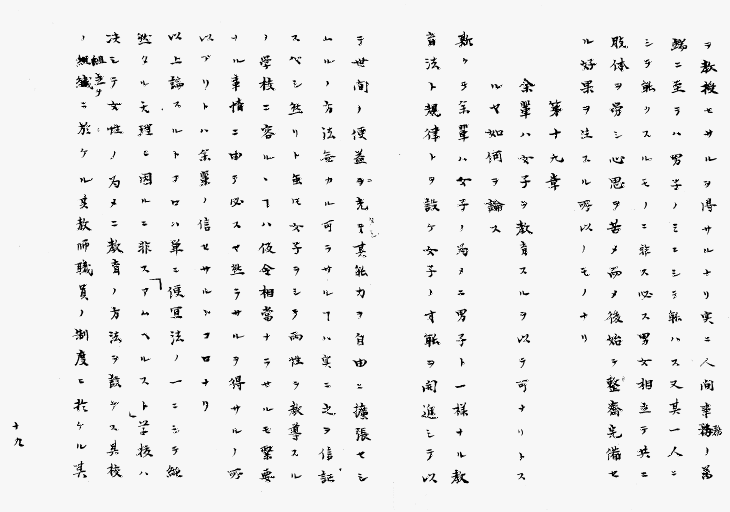 ヲ教授セサルヲ得サルナリ実ニ人間事務ノ第
ニ至テハ男子ノミニシテ能ハス又其一人ニ
シテ能クスルモノニ非ス必ス男女相互テ共ニ
肢体ヲ労シ心思ヲ苦メ而メ後始テ整斎完備セ
ル好果ヲ生スル所以ノモノナリ
第十九章
余輩ハ女子ヲ教育スルヲ以テ可ナリトス
ルヤ如何ヲ論ス
斯クテ余輩ハ女子ノ為メニ男子ト一様ナル教
育法ト規律トヲ設ケ女子ノ才能ヲ開進シテ以
テ世間ノ便益ヲ充其能力ヲ自由ニ擴張セシ
ムルノ方法無カル可ラサルヿハ実ニ之ヲ信認
スベシ然リト虽𪜈女子ヲシテ両性ヲ教導スル
ノ学校ニ容ルヽヿハ仮令相當ナラサルモ緊要
ナル事情ニ由テ必スヤ然ラサルヲ得サルノ所
以アリトハ余輩ノ信セサルトコロナリ
以上論スルトコロハ単ニ便宜法ノ一ニシテ純
然タル天理ニ因ルニ非ス「アムヘルスト」学校ハ
决シテ女性ノ為メニ教育ノ方法ヲ設ケス其校
ノ組立ニ於ケル其教師職員ノ制度ニ於ケル其
十九